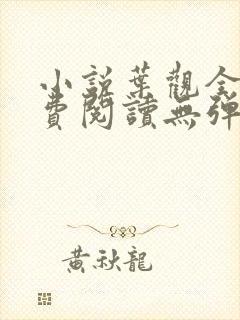 小說葉觀全
費閱讀無彈
黃秋龍